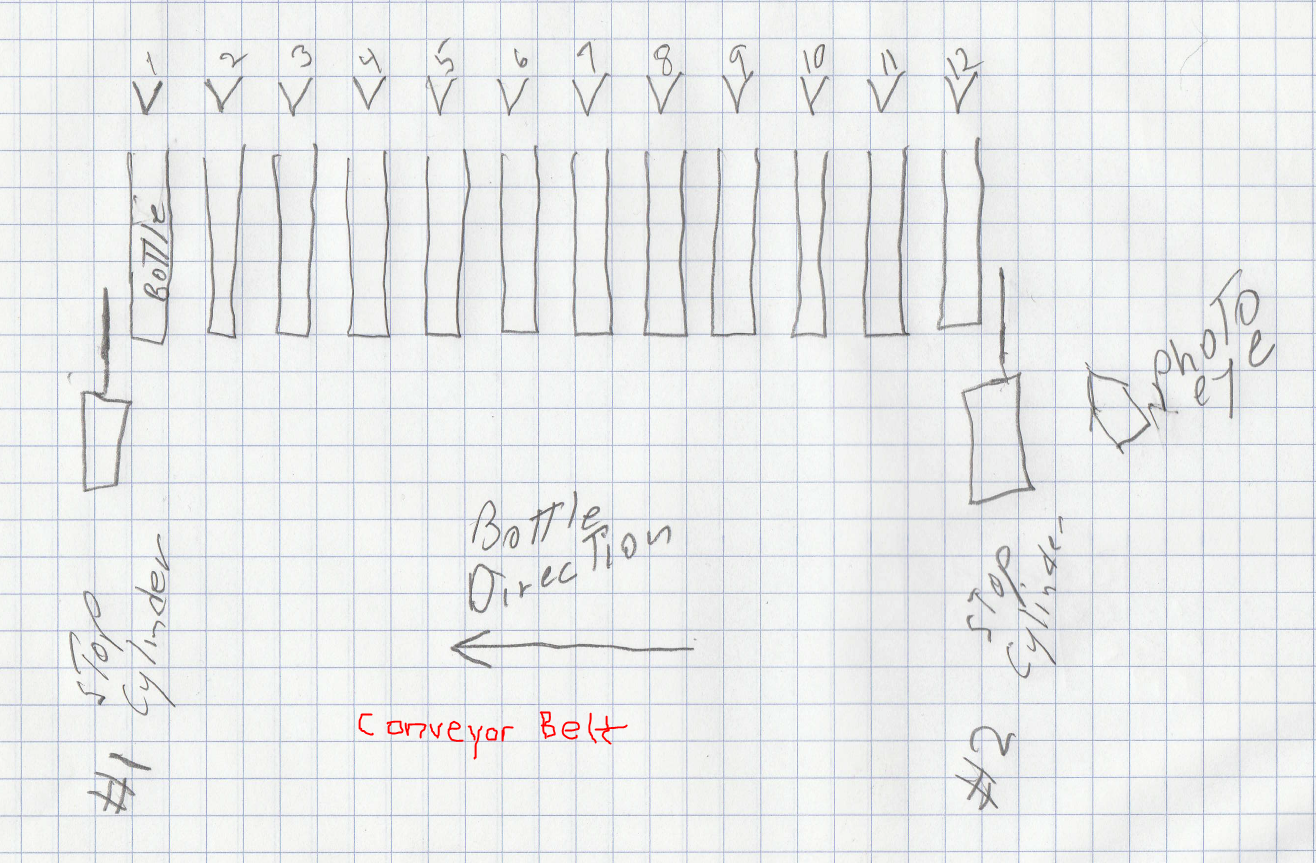 1 2 3 4 5 6 7 8 9 10 11 12
Bottle
Photo
eye
Bottle
Direction
Stop
Cylinder
#1
Stop
Cylinder
#2
Conveyor Belt